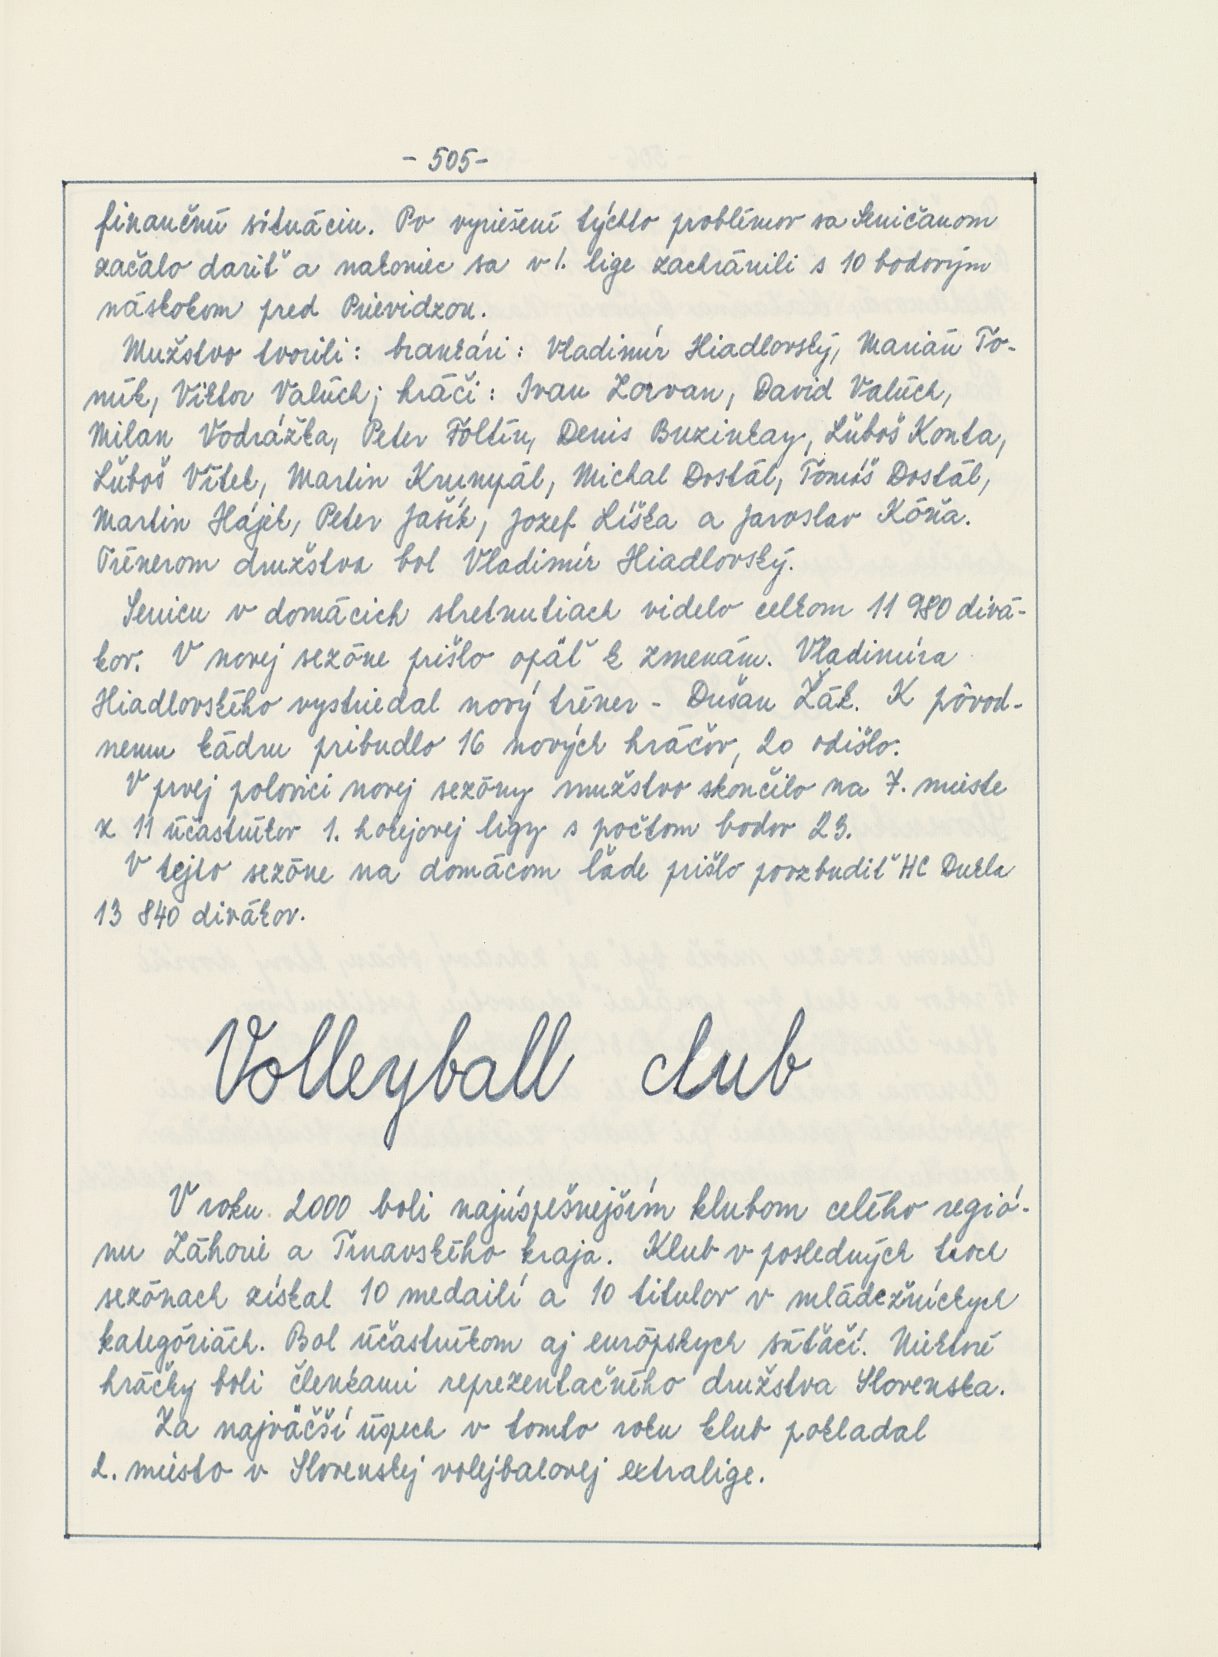 - 505 -
finančnú situáciu. Po vyriešení týchto problémov sa Seničanom
začalo dariť a nakoniec sa v 1. lige zachránili s 10 bodovým
náskokom pred Prievidzou.
Mužstvo tvorili: brankári: Vladimír Hiadlovský, Marián To-
mík, Viktor Valúch; hráči: Ivan Zorvan, David Valúch,
Milan Vodrážka, Peter Foltín, Denis Buzinkay, Ľuboš Konta,
Ľuboš Vítek, Martin Krumpál, Michal Dostál, Tomáš Dostál,
Martin Hájek, Peter Jašík, Jozef Líška a Jaroslav Kóňa.
Trénerom družstva bol Vladimír Hiadlovský.
Senicu v domácich stretnutiach videlo celkom 11 980 divá-
kov. V novej sezóne prišlo opäť k zmenám. Vladimíra
Hiadlovského vystriedal nový tréner - Dušan Žák. K pôvod-
nemu kádru pribudlo 16 nových hráčov, 20 odišlo.
V prvej polovici novej sezóny mužstvo skončilo na 7. mieste
z 11 účastníkov 1. hokejovej ligy s počtom bodov 23.
V tejto sezóne na domácom ľade prišlo povzbudiť HC Dukla
13 840 divákov.
Volleyball club
V roku 2000 boli najúspešnejším klubom celého regió-
nu Záhorie a Trnavského kraja. Klub v posledných troch
sezónach získal 10 medailí a 10 titulov v mládežníckych
kategóriách. Bol účastníkom aj európskych súťaží. Niektoré
hráčky boli členkami reprezentačného družstva Slovenska.
Za najväčší úspech v tomto roku klub pokladal
2. miesto v Slovenskej volejbalovej extralige.